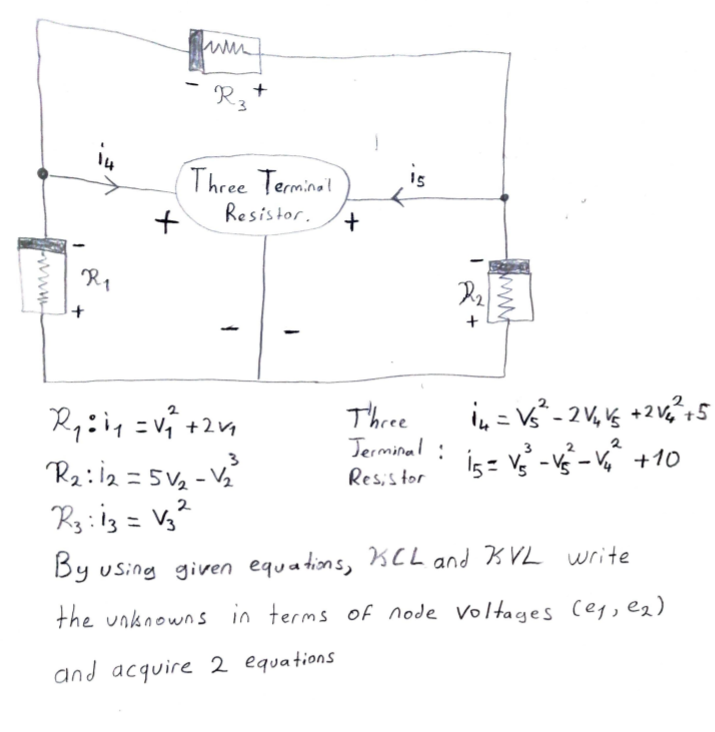 - R₃ +
i₄
Three Terminal
Resistor.
i₅
+ +
- R₁ +
- R₂ +
- -
R₁: i₁ = v₁² + 2v₁
R₂: i₂ = 5v₂ - v₂³
R₃: i₃ = v₃²
Three Terminal Resistor :
i₄ = v₅² - 2v₄v₅ + 2v₄² + 5
i₅ = v₅³ - v₅² - v₄² + 10
By using given equations, KCL and KVL write
the unknowns in terms of node voltages (e₁, e₂)
and acquire 2 equations